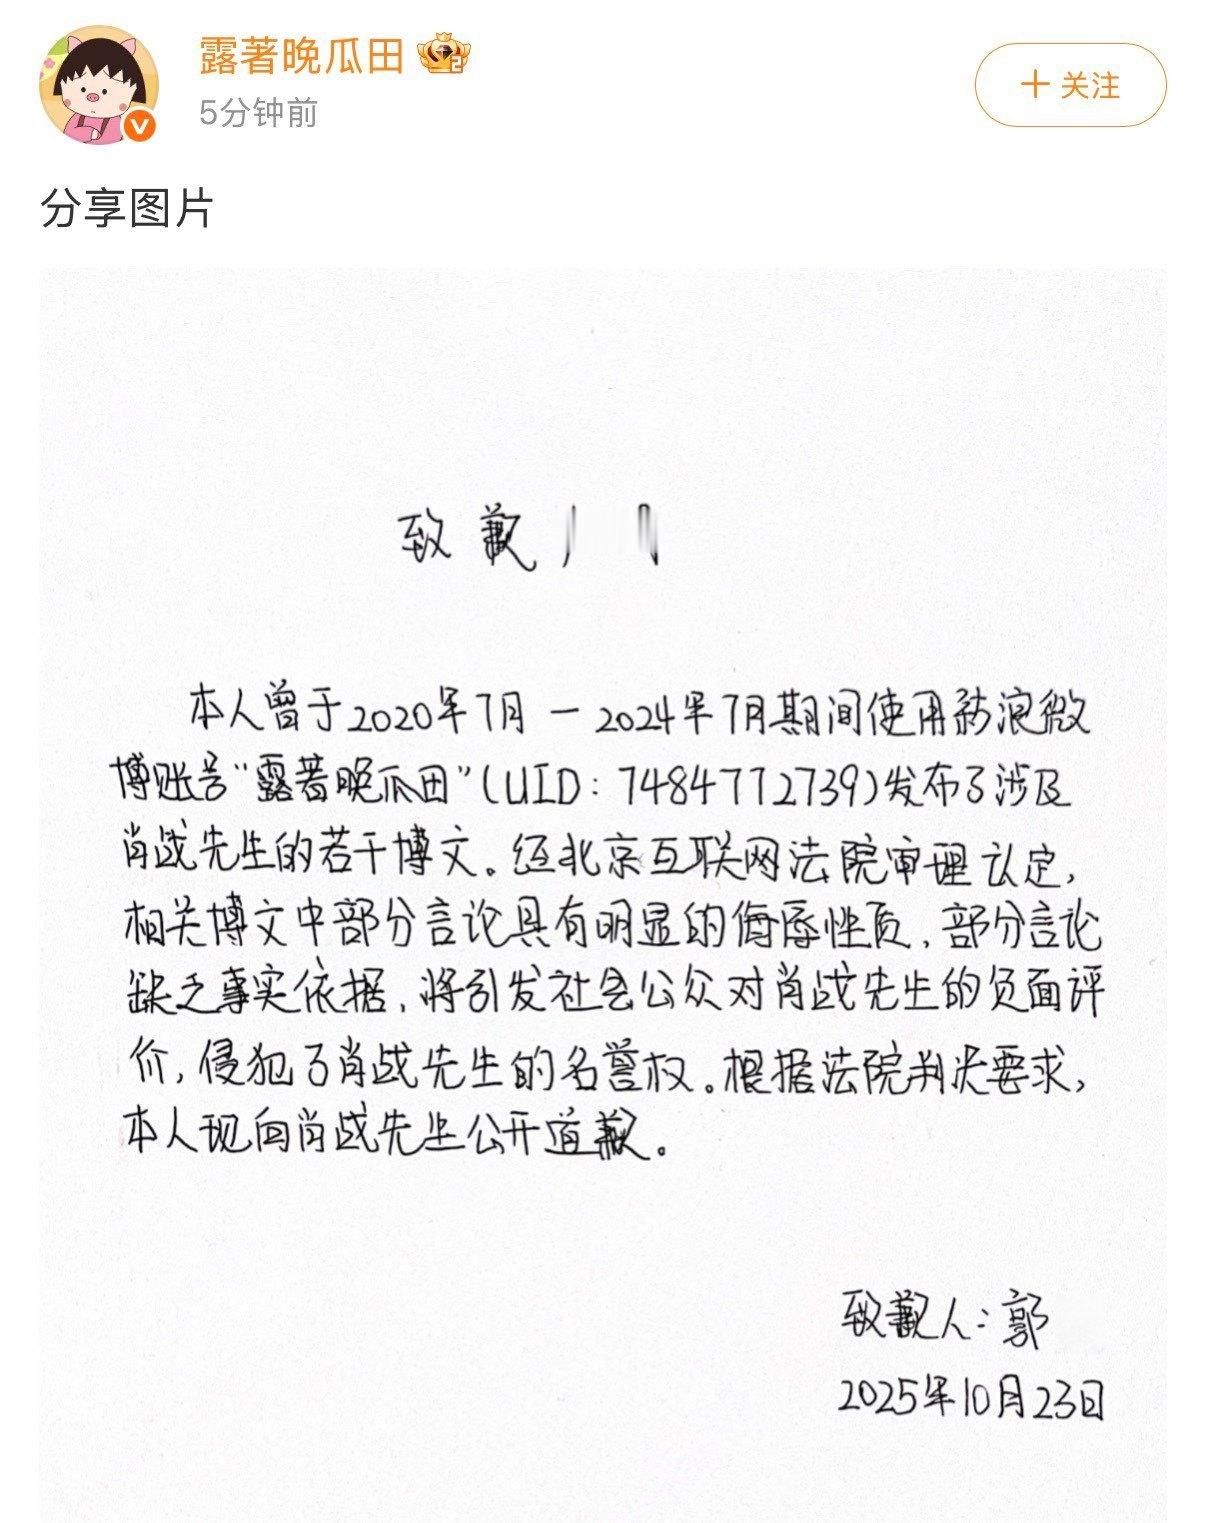 露著晚瓜田
5分钟前
+ 关注
分享图片
致歉
本人曾于2020年7月－2024年7月期间使用新浪微
博账号“露著晚瓜田”(UID：7484772739)发布了涉及
肖战先生的若干博文。经北京互联网法院审理认定，
相关博文中部分言论具有明显的侮辱性质，部分言论
缺乏事实依据，将引发社会公众对肖战先生的负面评
价，侵犯了肖战先生的名誉权。根据法院判决要求，
本人现向肖战先生公开道歉。
致歉人：郭
2025年10月23日